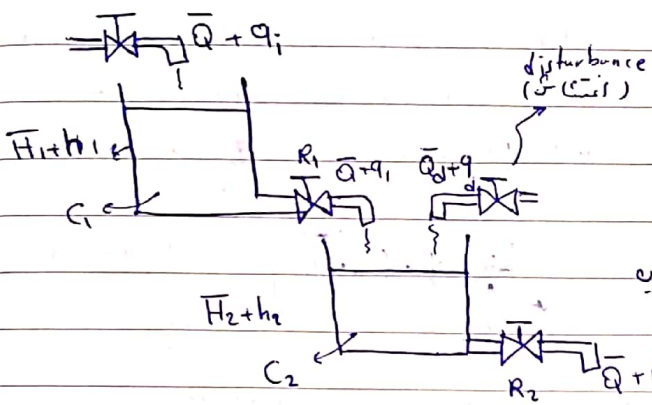 Q̅ + qᵢ
disturbance
H̅₁+h₁
R₁
Q̅+q₁
Q̅d+qd
C₁
H̅₂+h₂
C₂
R₂
Q̅ +